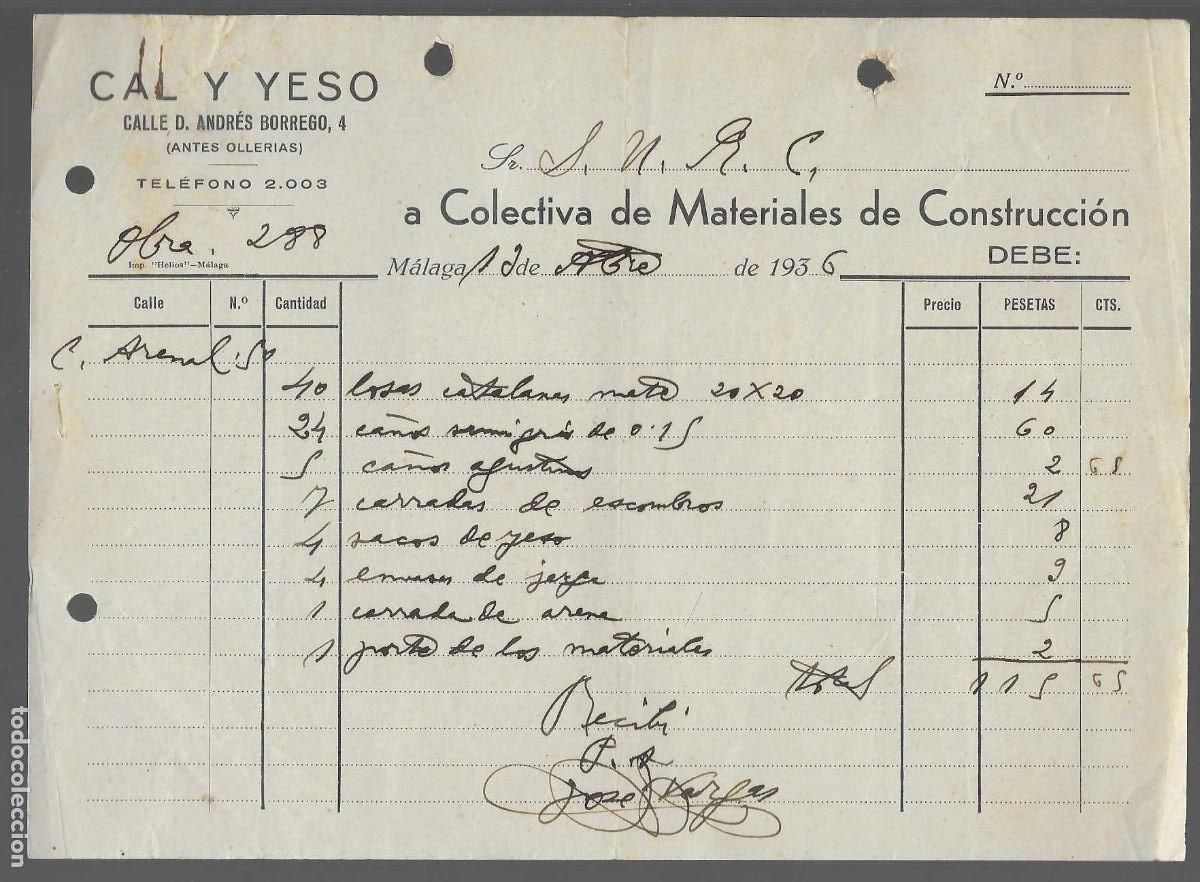 CAL Y YESO
CALLE D. ANDRÉS BORREGO, 4
(ANTES OLLERIAS)
TELÉFONO 2.003
Obra. 288
Imp. "Helios"—Málaga
N.º
Sr. S. U. R. C,
a Colectiva de Materiales de Construcción
DEBE:
Málaga de de 1936
Calle N.º Cantidad Precio PESETAS CTS.
C. Arenal 50
40 losas catalanas mate 20X20 14
24 caños semigrés de 0.15 60
5 caños agustinos 2 65
7 carradas de escombros 21
4 sacos de yeso 8
4 envases de jerga
1 carrada de arena 5
1 porte de los materiales 2
total 115 65
Recibi
P. A
José Vargas
todocoleccion